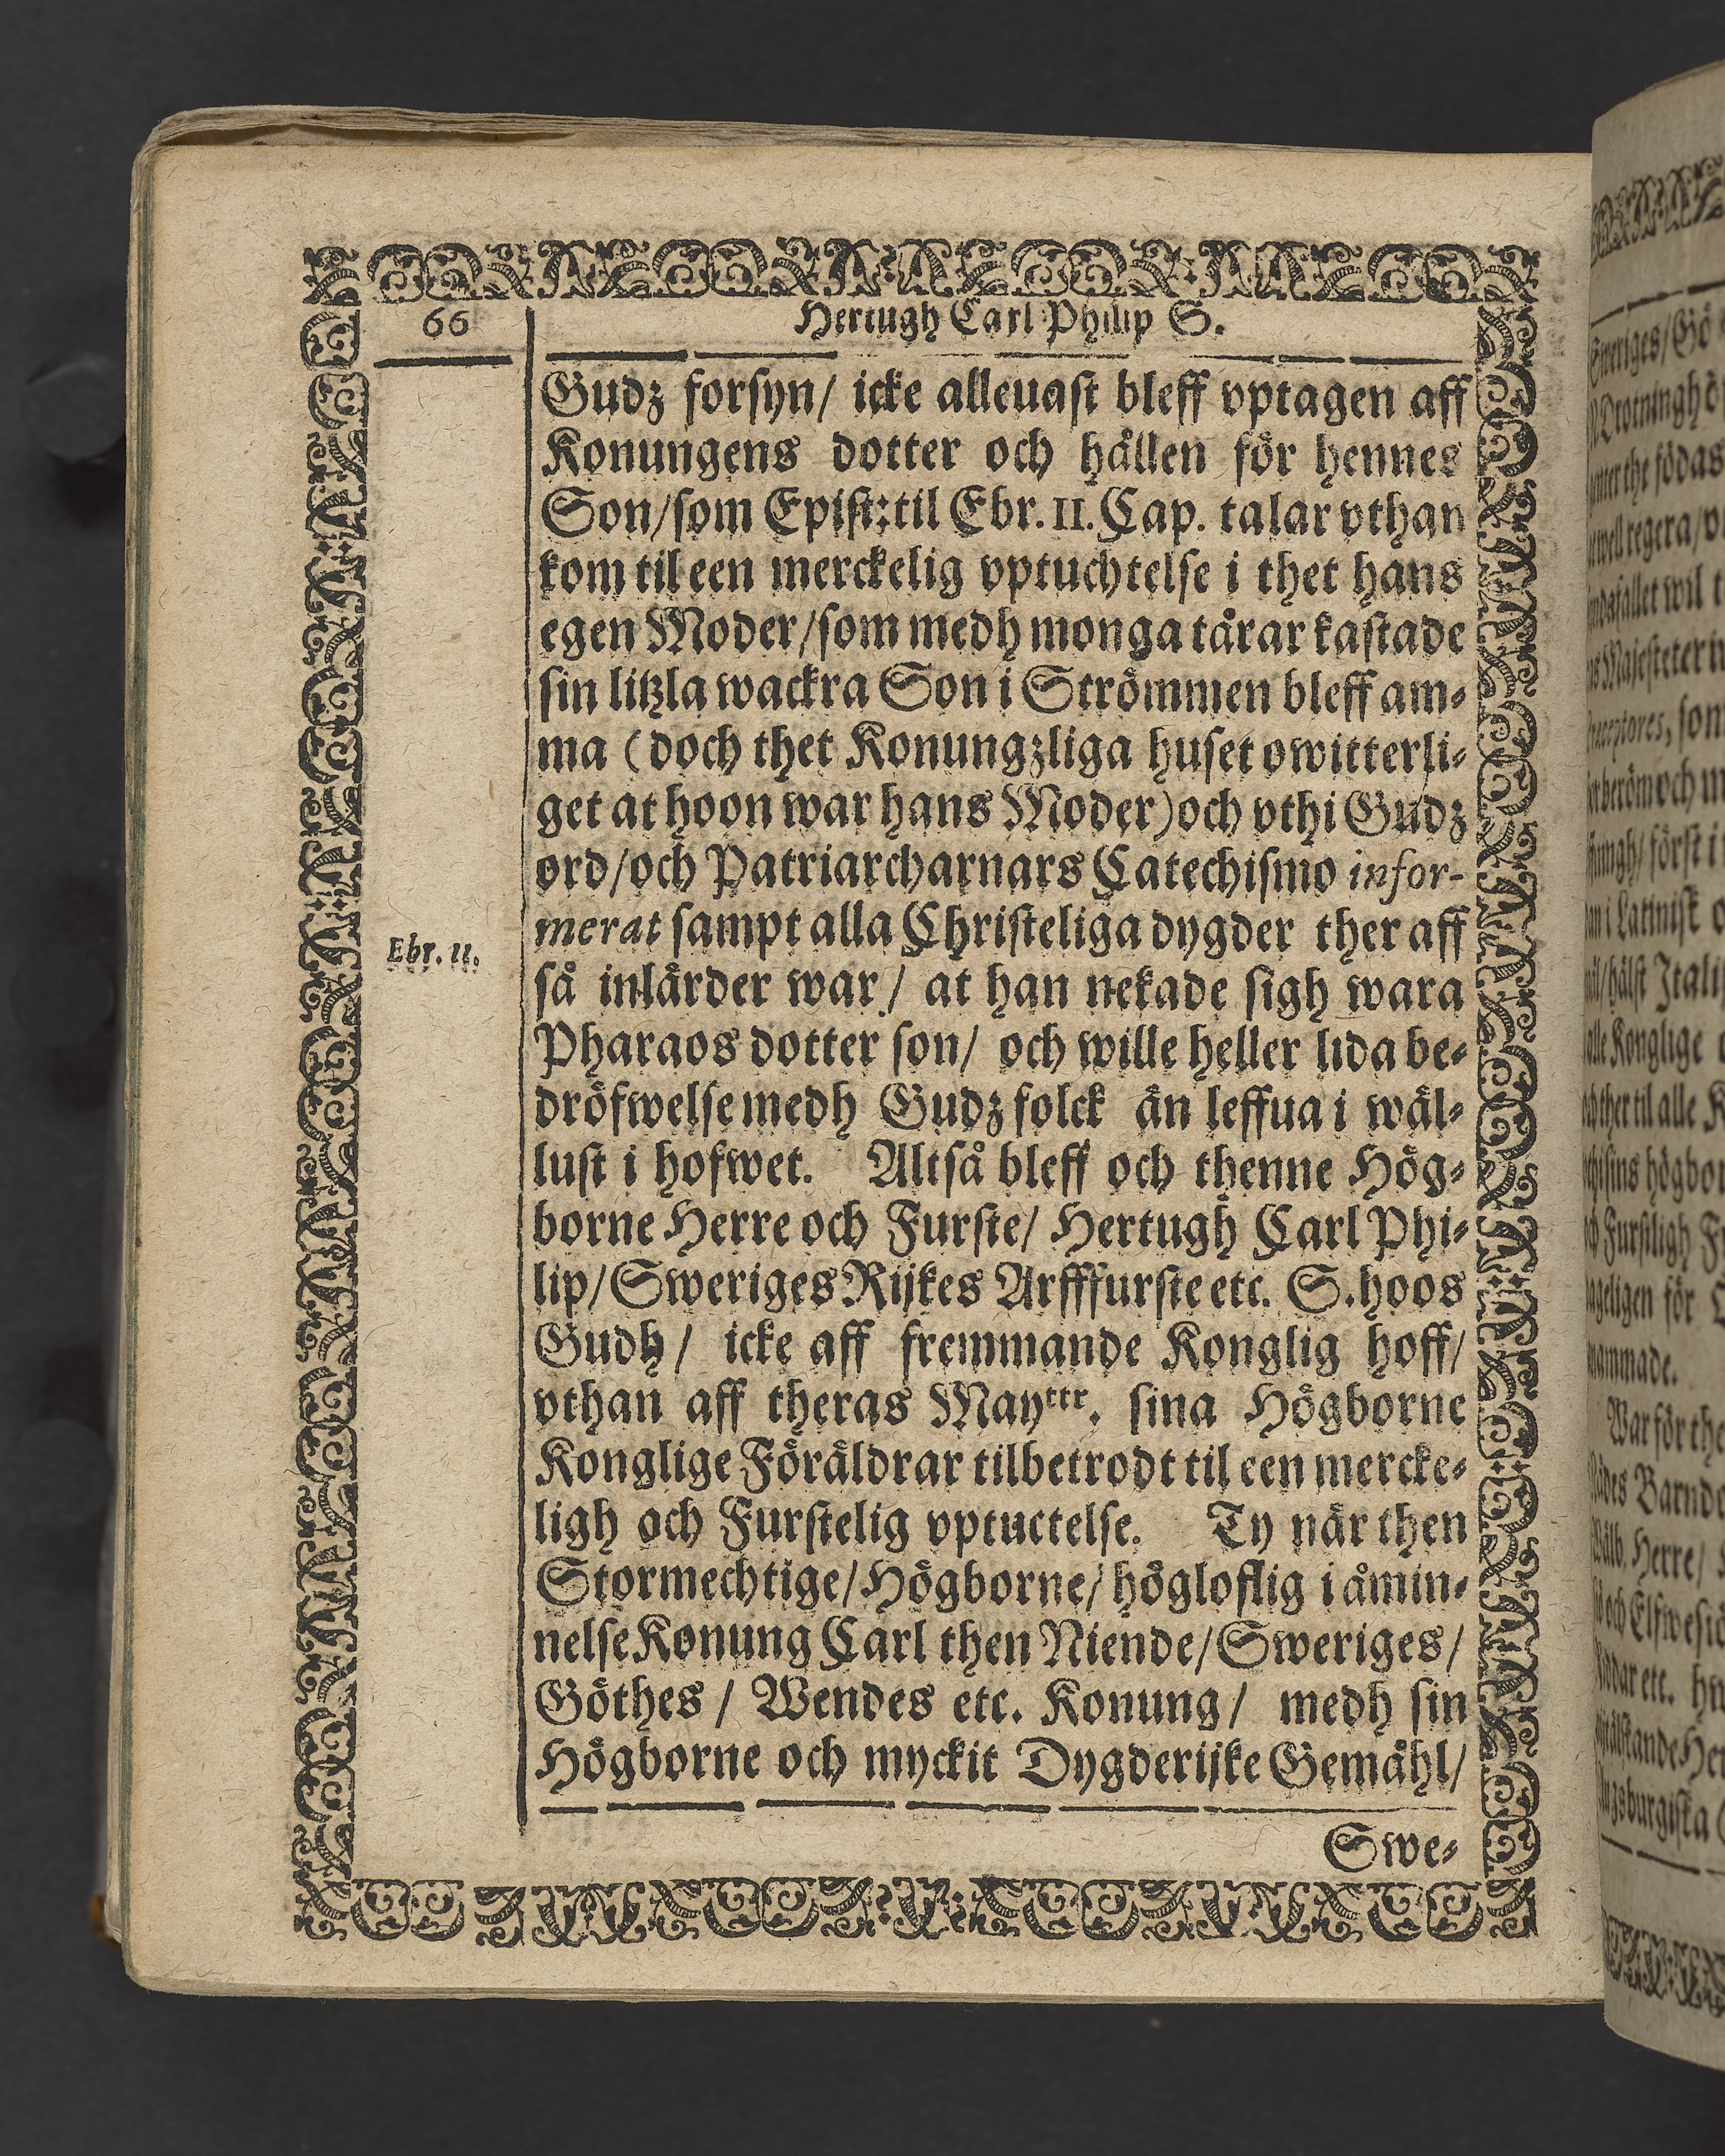 66
Hertugh Carl Philip S.
Gudz forsyn/ icke alleuast bleff vptagen aff
Konungens dotter och hållen för hennes
Son/som Epist:til Ebr. 11. Cap. talar vthan
kom til een merckelig vptuchtelse i thet hans
egen Moder/som medh monga tårar kastade
sin litzla wackra Son i Strömmen bleff am-
ma (doch thet Konungzliga huset owitterli-
get at hoon war hans Moder) och vthi Gudz
ord/och Patriarcharnars Catechismo infor-
merat sampt alla Christeliga dygder ther aff
Ebr. 11.
så inlärder war/ at han nekade sigh wara
Pharaos dotter son/ och wille heller lida be-
dröfwelse medh Gudz folck än leffua i wäl-
lust i hofwet. Altså bleff och thenne Hög-
borne Herre och Furste/ Hertugh Carl Phi-
lip/Sweriges Rijkes Arfffurste etc. S. hoos
Gudh/ icke aff fremmande Konglig hoff/
vthan aff theras Mayttr. sina Högborne
Konglige Föräldrar tilbetrodt til een mercke-
ligh och Furstelig vptuctelse. Ty när then
Stormechtige/Högborne/högloflig i åmin-
nelse Konung Carl then Niende/Sweriges/
Göthes / Wendes etc. Konung/ medh sin
Högborne och myckit Dygderijke Gemåhl/
Swe-